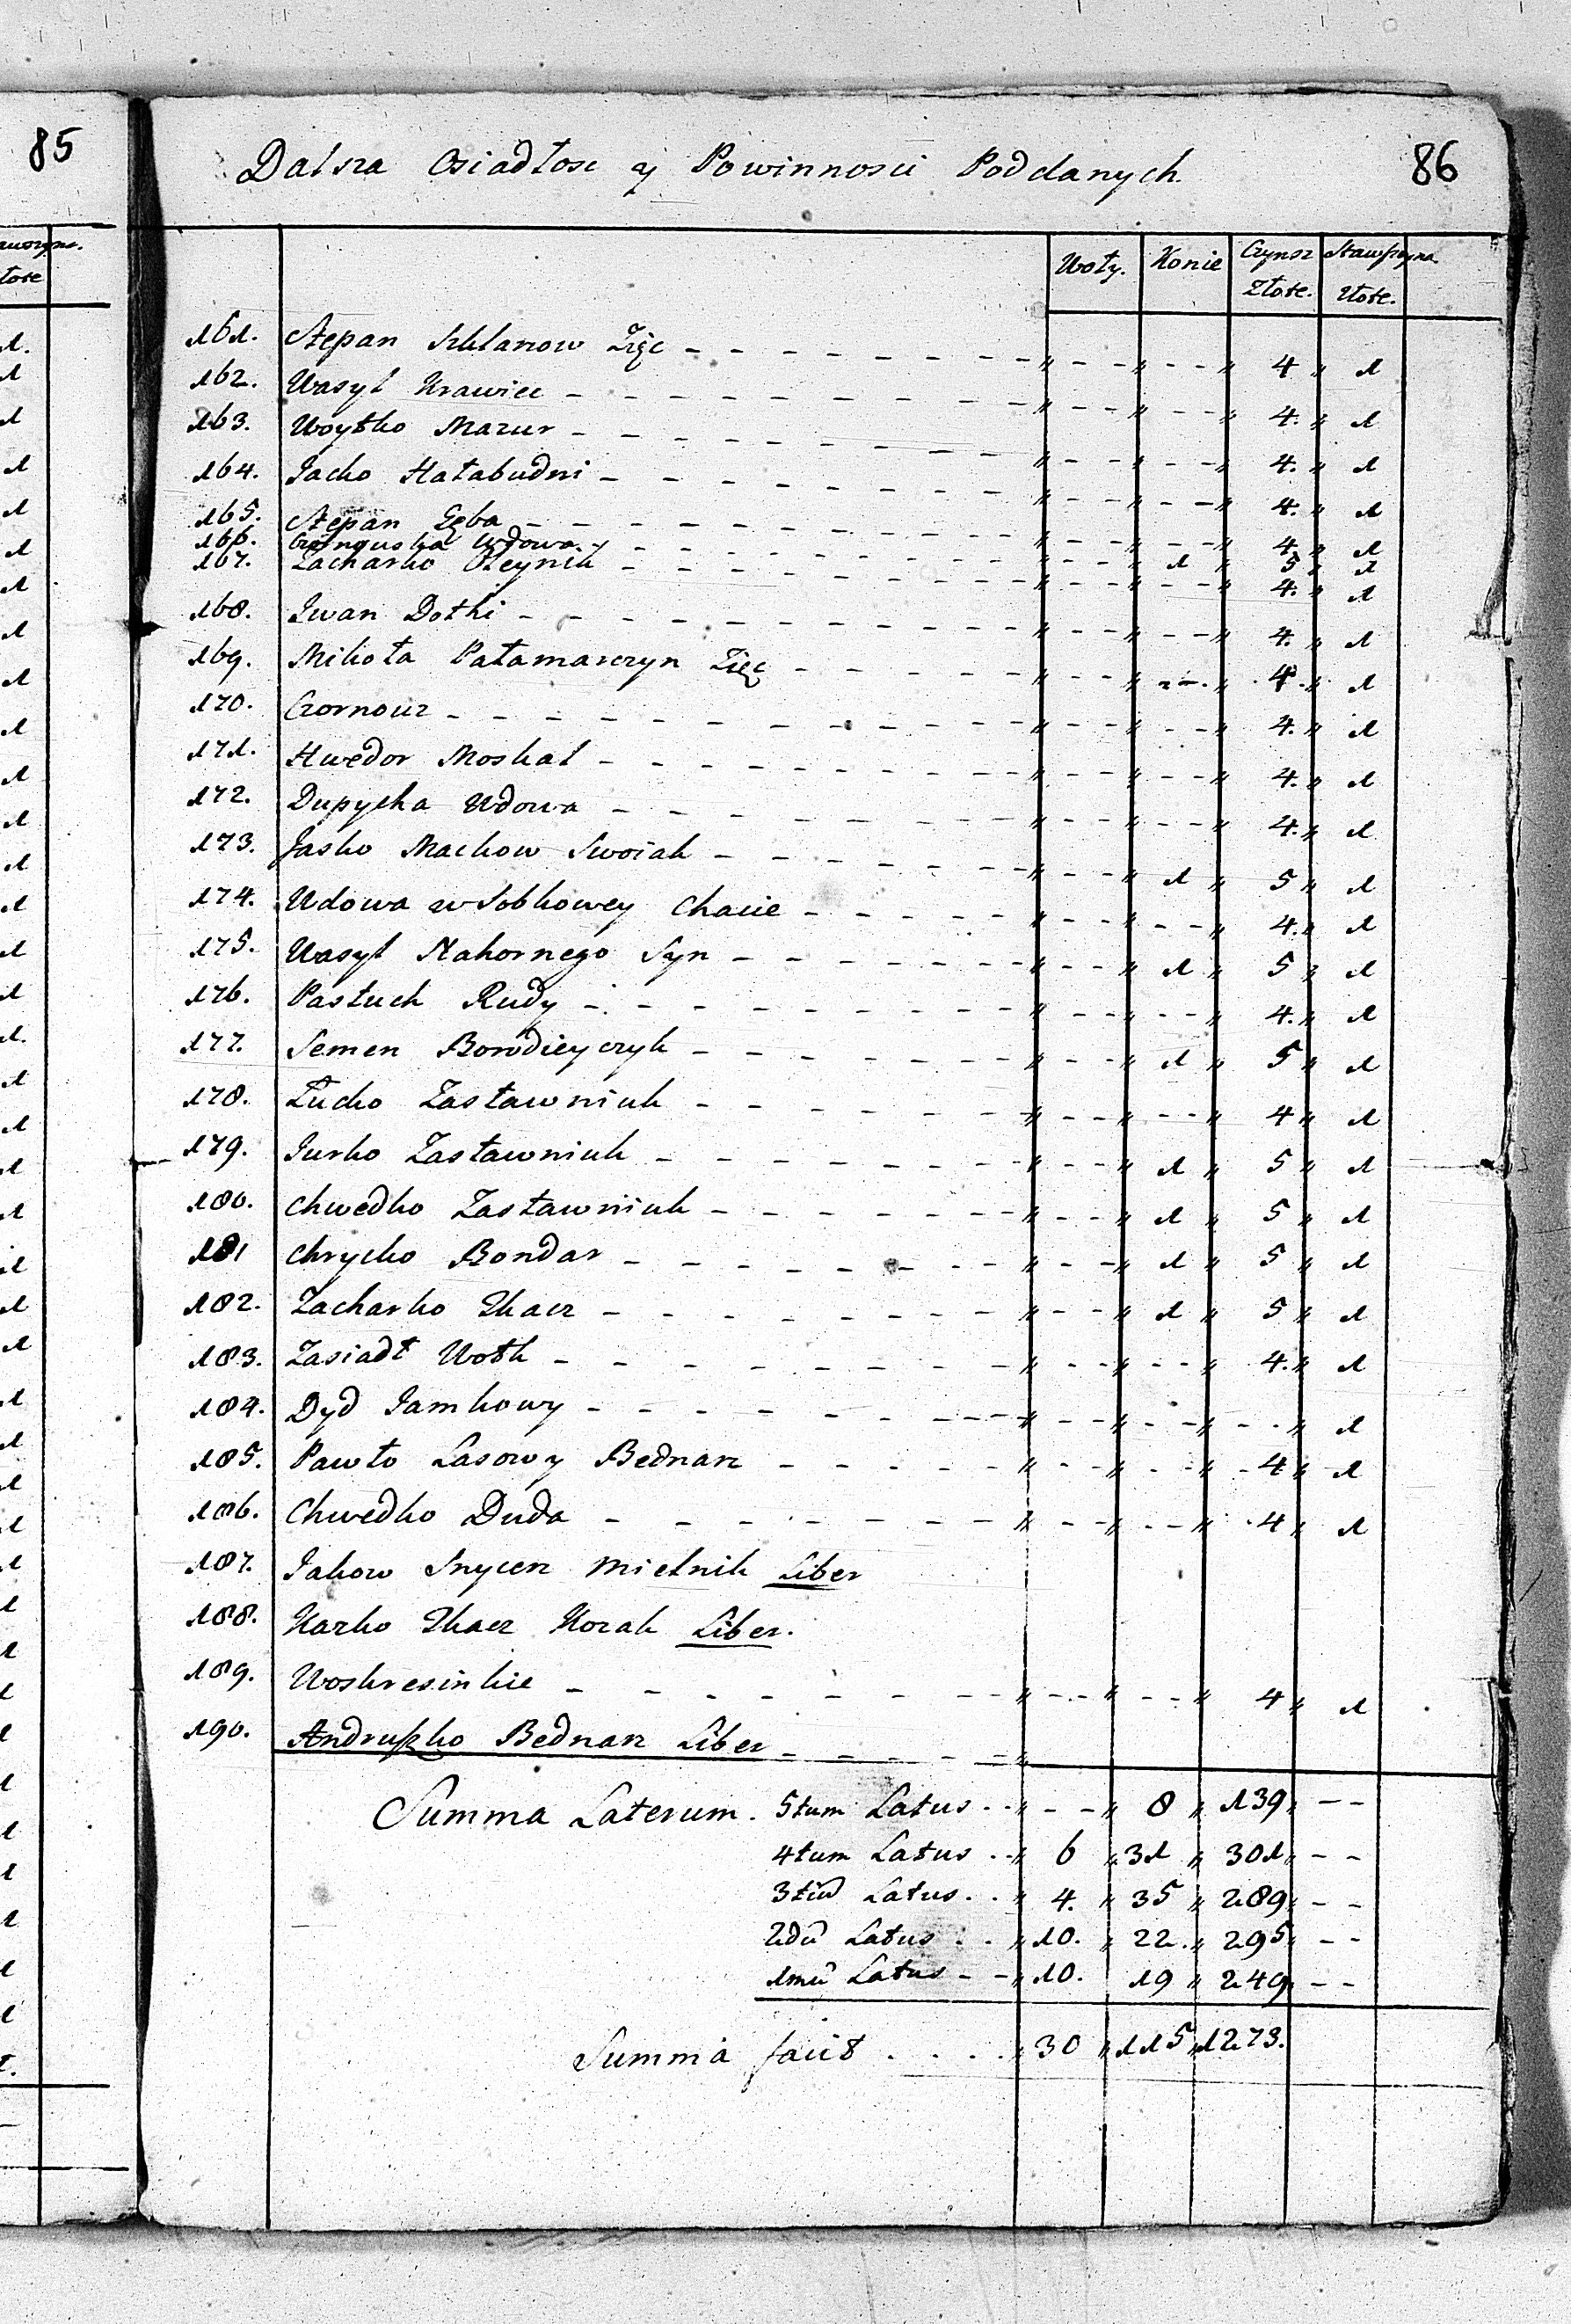 85
86
Dalsza Osiadłosc y Powinnosci Poddanych.
Woły. Konie Czynsz Złote. Stawszczyzna. Złote.
161. Stepan Szklanow Zięc - - - 4 1
162. Wasyl Krawiec - - - 4. 1
163. Woytko Mazur - - - 4. 1
164. Jacko Hałabudni - - - 4. 1
165. Stepan Gęba - - - 4 1
166. Wdowa. - - - 1 5 1
167. Zacharko Oleynik - - - 4. 1
168. Iwan Dołhi - - - 4. 1
169. Mikoła Pałamarczyn Zięc - - - 4 1
170. Czornouz - - - 4. 1
171. Hwedor Moskal - - - 4. 1
172. Dupycha Wdowa - - - 4. 1
173. Jasko Machow Swoiak - - - 1 5 1
174. Wdowa w Sobkowey Chacie - - - 4. 1
175. Wasyl Nahornego Syn - - - 1 5 1
176. Pastuch Rudy - - - 4. 1
177. Semen Borodieyczyk - - - 1 5 1
178. Łucko Zastawniuk - - - 4 1
179. Jurko Zastawniuk - - - 1 5 1
180. Chwedko Zastawniuk - - - 1 5 1
181 Chrycko Bondar - - - 1 5 1
182. Zacharko Tkacz - - - 1 5 1
183. Zasiadł Wołk - - - 4. 1
184. Dyd Jamkowy - - - 1
185. Pawło Lasowy Bednarz - - - 4 1
186. Chwedko Duda - - - 4 1
187. Jakow Snycerz Mielnik Liber
188. Karko Tkacz Kozak Liber.
189. Woskresinkie - - - 4 1
190. Andruszko Bednarz Liber - - -
Summa Laterum. 5tum Latus - - 8 139 - -
4tum Latus - - 6 31 301 - -
3tiū Latus - - 4. 35 289 - -
2dū Latus - - 10. 22. 295 - -
1mū Latus - - 10. 19 249 - -
Summa facit . . . . 30 115 1273.